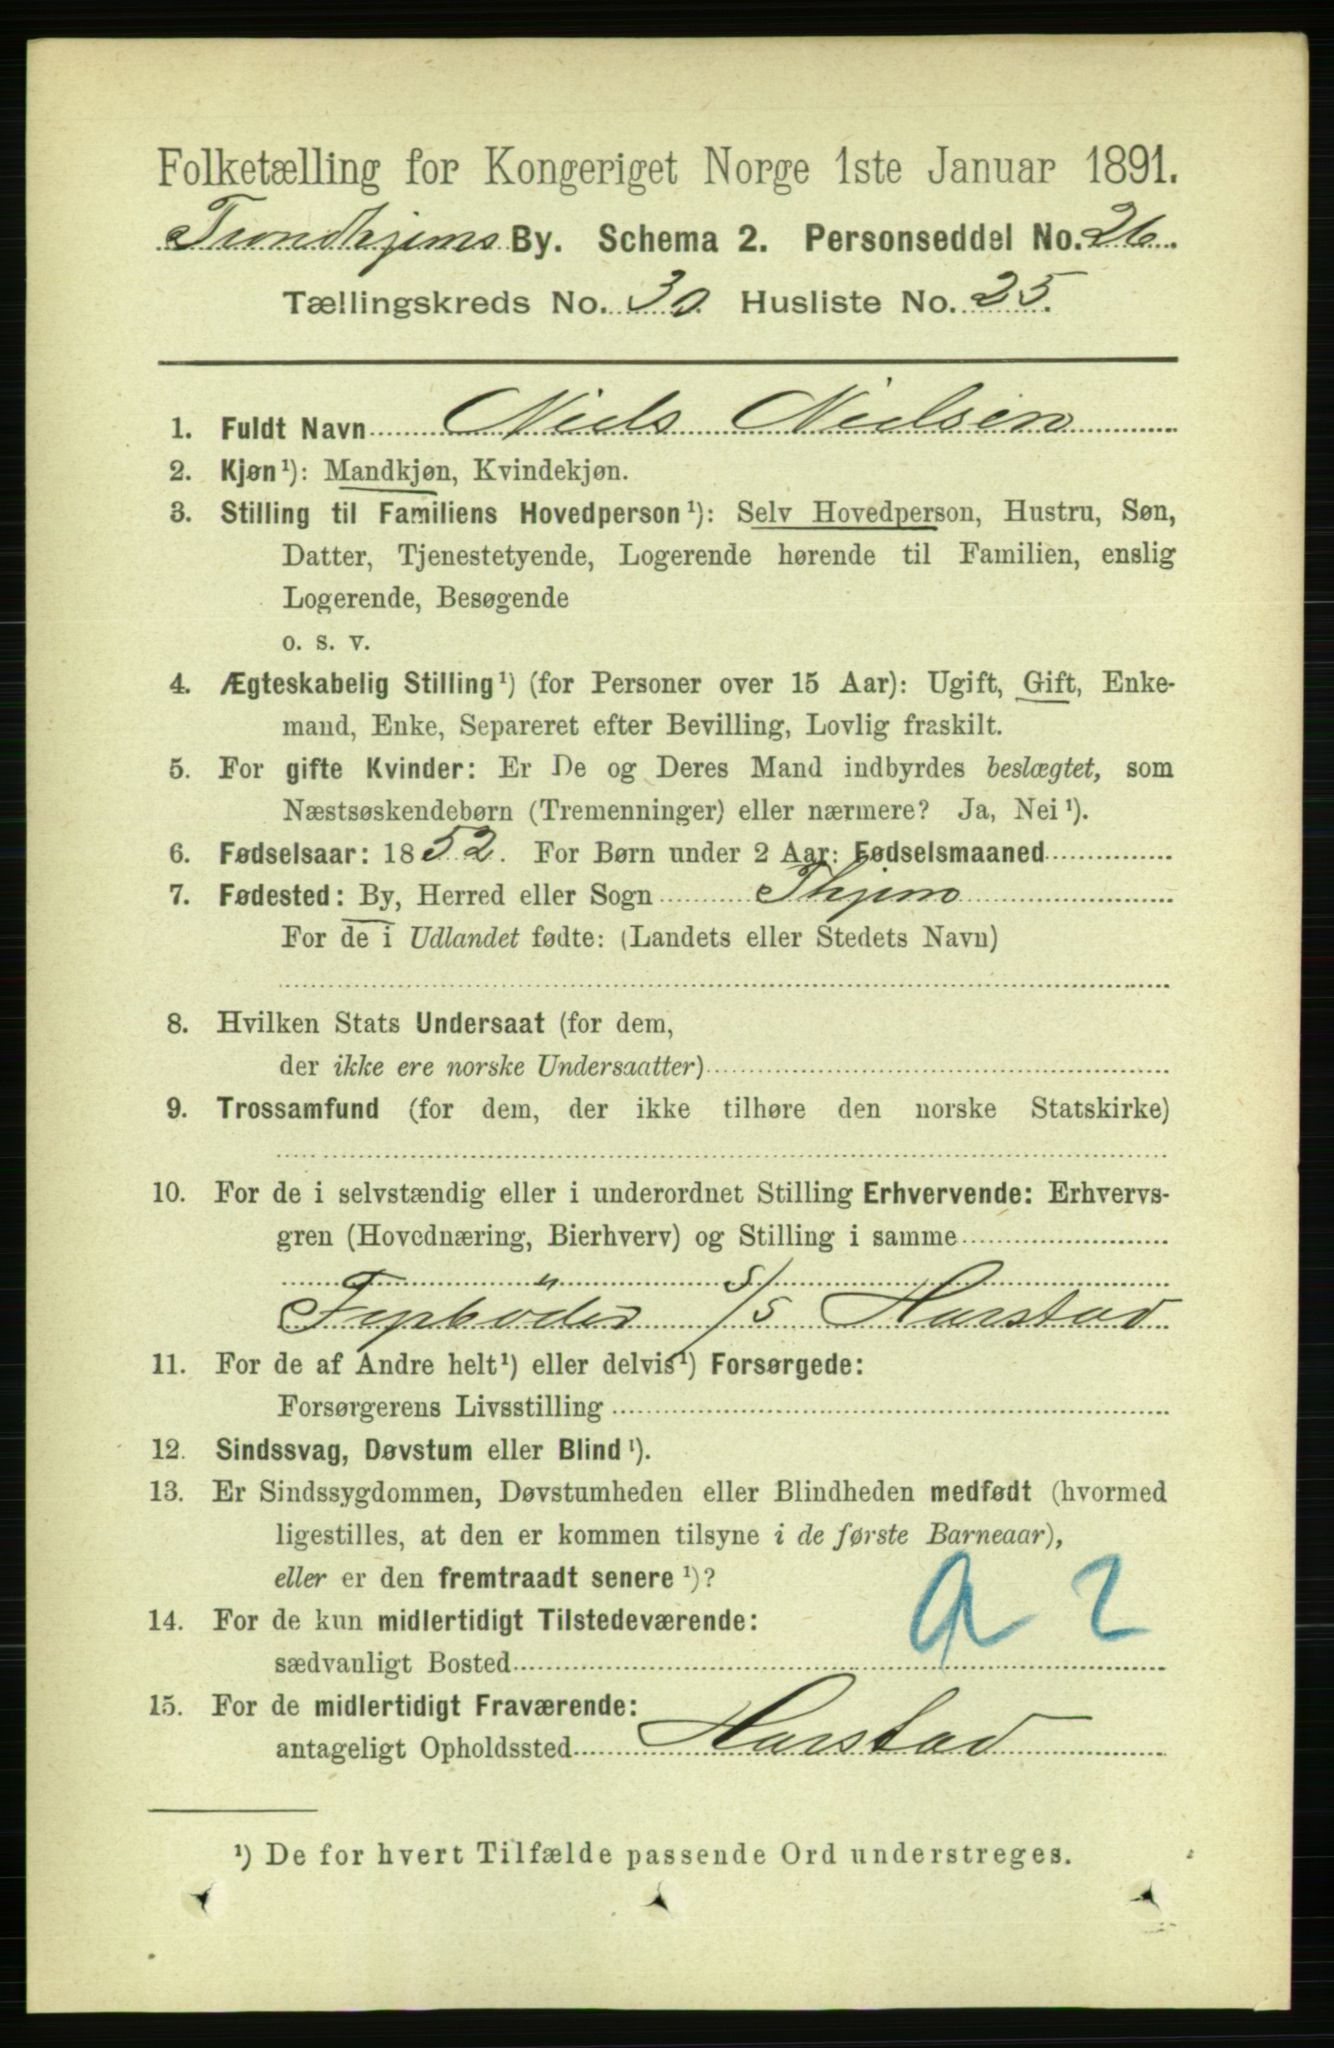 Folketælling for Kongeriget Norge 1ste Januar 1891.
Trondhjems By. Schema 2. Personseddel No. 26.
Tællingskreds No. 30. Husliste No. 25.
1. Fuldt Navn Niels Nielsen
2. Kjøn¹): Mandkjøn, Kvindekjøn.
3. Stilling til Familiens Hovedperson¹): Selv Hovedperson, Hustru, Søn,
Datter, Tjenestetyende, Logerende hørende til Familien, enslig
Logerende, Besøgende
o. s. v.
4. Ægteskabelig Stilling¹) (for Personer over 15 Aar): Ugift, Gift, Enke-
mand, Enke, Separeret efter Bevilling, Lovlig fraskilt.
5. For gifte Kvinder: Er De og Deres Mand indbyrdes beslægtet, som
Næstsøskendebørn (Tremenninger) eller nærmere? Ja, Nei¹).
6. Fødselsaar: 1852. For Børn under 2 Aar: Fødselsmaaned
7. Fødested: By, Herred eller Sogn Thjem
For de i Udlandet fødte: (Landets eller Stedets Navn)
8. Hvilken Stats Undersaat (for dem,
der ikke ere norske Undersaatter)
9. Trossamfund (for dem, der ikke tilhøre den norske Statskirke)
10. For de i selvstændig eller i underordnet Stilling Erhvervende: Erhvervs-
gren (Hovednæring, Bierhverv) og Stilling i samme
Fyrböder S/S Harstad
11. For de af Andre helt¹) eller delvis¹) Forsørgede:
Forsørgerens Livsstilling
12. Sindssvag, Døvstum eller Blind¹).
13. Er Sindssygdommen, Døvstumheden eller Blindheden medfødt (hvormed
ligestilles, at den er kommen tilsyne i de første Barneaar),
eller er den fremtraadt senere¹)?
a 2
14. For de kun midlertidigt Tilstedeværende:
sædvanligt Bosted
15. For de midlertidigt Fraværende:
antageligt Opholdssted Harstad
¹) De for hvert Tilfælde passende Ord understreges.